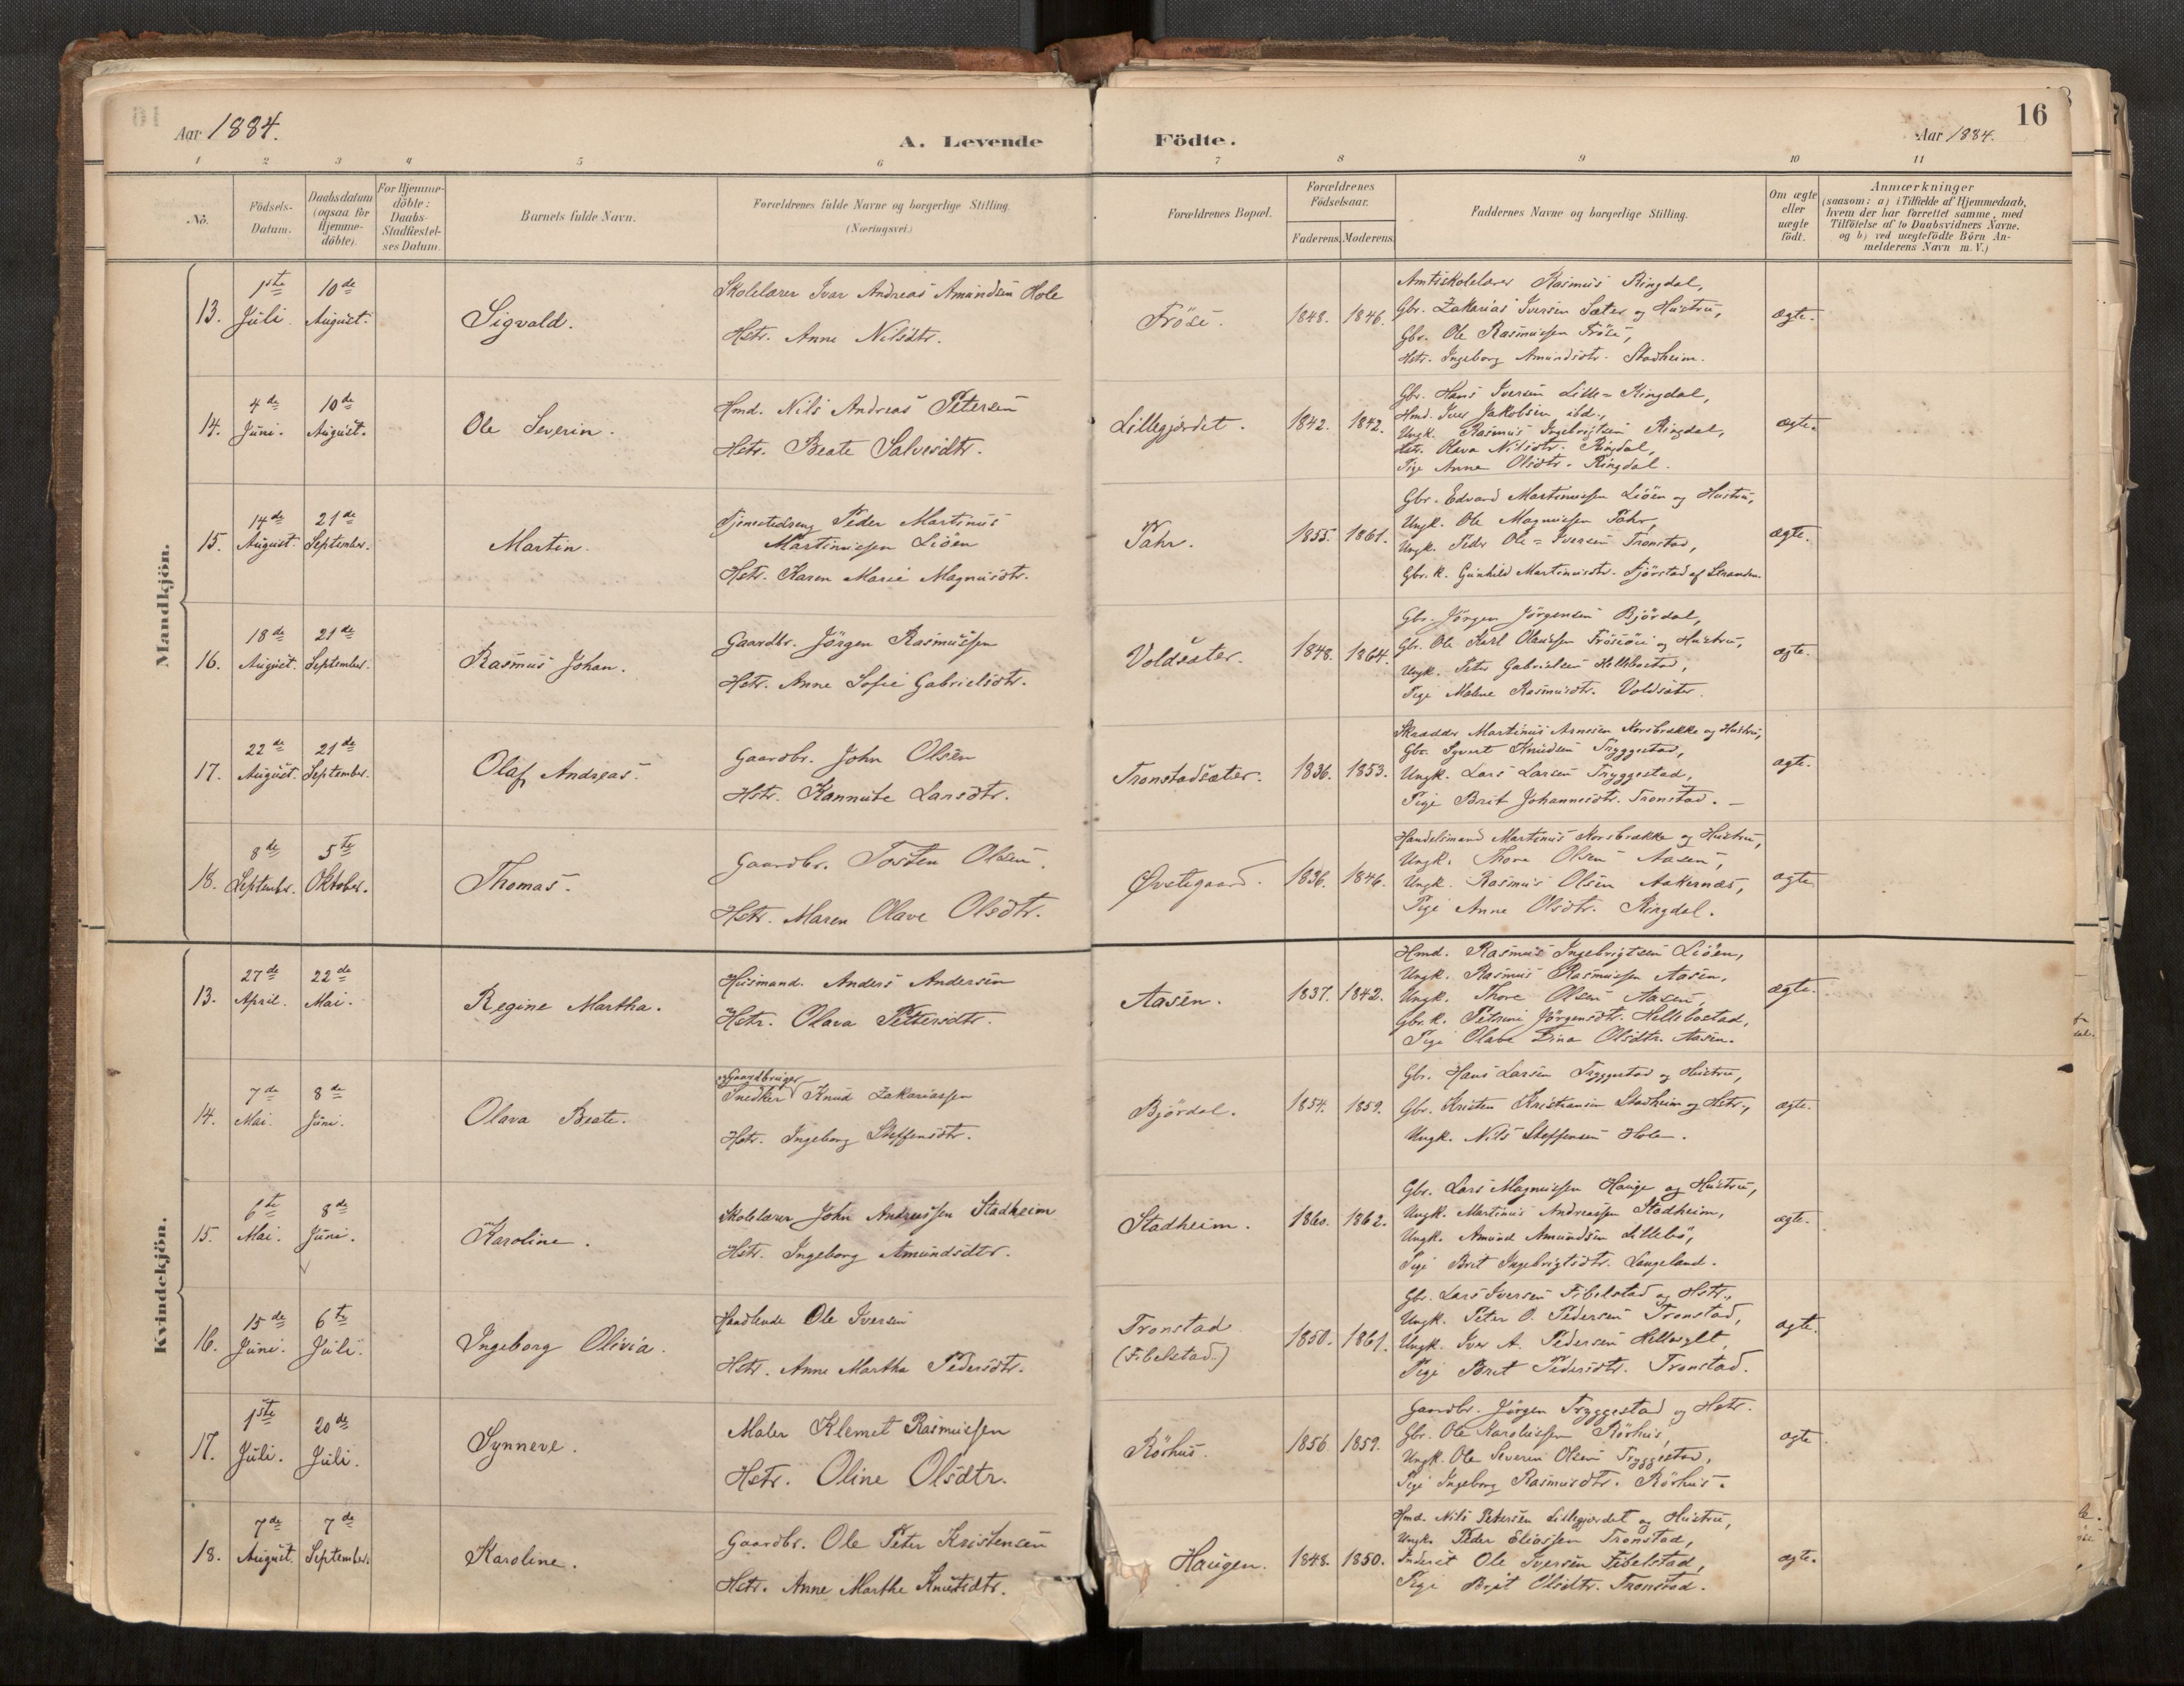 Aar 1884.
A. Levende Födte.
16
Aar 1884.
1 2 3 4 5 6 7 8 9 10 11
No.
Födsels-Datum.
Daabsdatum (ogsaa for Hjemme-döbte).
For Hjemme-döbte: Daabs-Stadfæstel-ses Datum.
Barnets fulde Navn.
Forældrenes fulde Navne og borgerlige Stilling.
(Næringsvei.)
Forældrenes Bopæl.
Forældrenes Födselsaar.
Faderens. Moderens.
Faddernes Navne og borgerlige Stilling.
Om ægte eller uægte födt.
Anmærkninger
(saasom: a) i Tilfælde af Hjemmedaab,
hvem der har forrettet samme, med
Tilföielse af to Daabsvidners Navne.
og b) ved uægtefödte Börn An-
melderens Navn m. V.)
Mandkjön.
13. 1ste Juli. 10de August. Sigvald.
Skolelærer Ivar Andreas Amundsen Hole
Hstr. Anne Nilsdtr.
Fröse. 1848. 1846.
Amtsskolelærer Rasmus Ringdal,
Gbr. Zakarias Iversen Sæter og Hustru,
Gbr. Ole Rasmussen Fröse,
Hstr. Ingeborg Amundsdtr. Stadheim.
ægte.
14. 4de Juni. 10de August. Ole Severin.
Hmd. Nils Andreas Petersen
Hstr. Beate Salvesdtr.
Lillegjærdet. 1842. 1842.
Gbr. Hans Iversen Lille-Ringdal,
Hmd. Iver Jakobsen ibd.,
Ungk. Rasmus Ingebrigtsen Ringdal,
Hstr. Olava Nilsdtr. Ringdal,
Pige Anne Olsdtr. Ringdal.
ægte.
15. 14de August. 21de September. Martin.
Peder Martinus
Martinussen Liöen
Hstr. Karen Marie Magnusdtr.
Fahr. 1855. 1861.
Gbr. Edvard Martinussen Liöen og Hustru,
Ungk. Ole Magnussen Fahr,
Ungk. Peder Ole-Iversen Tronstad,
Gbr.k. Gunhild Martinusdtr. Fjörstad af Stranden.
ægte.
16. 18de August. 21de September. Rasmus Johan.
Gaardbr. Jörgen Rasmussen
Hstr. Anne Sofie Gabrielsdtr.
Voldsæter. 1848. 1864.
Gbr. Jörgen Jörgensen Björdal,
Gbr. Ole Karl Olaussen Frösöen og Hustru,
Ungk. Peter Gabrielsen Hellebostad,
Pige Malene Rasmusdtr. Voldsæter.
ægte.
17. 22de August. 21de September. Olaf Andreas.
Gaardbr. John Olsen
Hstr. Kannute Larsdtr.
Tronstadsæter. 1836. 1853.
Skrædder Martinus Arnesen Korsbrække og Hustru,
Gbr. Syvert Knudsen Tryggestad,
Ungk. Lars Larsen Tryggestad,
Pige Brit Johannesdtr. Tronstad. –
ægte.
18. 8de September. 5te Oktober. Thomas.
Gaardbr. Torsten Olsen.
Hstr. Maren Olave Olsdtr.
Øvstegaard. 1836. 1846.
Handelsmand Martinus Korsbrække og Hustru,
Ungk. Thore Olsen Aasen,
Ungk. Rasmus Olsen Aakernæs,
Pige Anne Olsdtr. Ringdal.
ægte.
Kvindekjön.
13. 27de April. 22de Mai. Regine Martha.
Husmand. Anders Andersen
Hstr. Olava Pettersdtr.
Aasen. 1837. 1842.
Hmd. Rasmus Ingebrigtsen Liöen,
Ungk. Rasmus Rasmussen Aasen,
Ungk. Thore Olsen Aasen,
Gbr.k. Petrine Jörgensdtr. Hellebostad,
Pige Olave Lina Olsdtr. Aasen.
ægte.
14. 7de Mai. 8de Juni. Olava Beate.
og Gaardbruger
Snedker Knud Zakariassen
Hstr. Ingeborg Steffensdtr.
Björdal. 1854. 1859.
Gbr. Hans Larsen Tryggestad og Hustru,
Gbr. Kristen Kristiansen Stadheim og Hstr.,
Ungk. Nils Steffensen Hole.
ægte.
15. 6te Mai. 8de Juni. Karoline.
Skolelærer John Andreassen Stadheim
Hstr. Ingeborg Amundsdtr.
Stadheim. 1860. 1862.
Gbr. Lars Magnussen Hauge og Hustru,
Ungk. Martinus Andreassen Stadheim,
Ungk. Amund Amundsen Lillebö,
Pige Brit Ingebrigtsdtr. Langeland.
ægte.
16. 15de Juni. 6te Juli. Ingeborg Olivia.
Handlende Ole Iversen
Hstr. Anne Martha Pedersdtr.
Tronstad (Fibelstad.) 1850. 1861.
Gbr. Lars Iversen Fibelstad og Hstr.,
Ungk. Peter O. Pedersen Tronstad,
Ungk. Iver A. Pedersen Hellesylt,
Pige Brit Pedersdtr. Tronstad.
ægte.
17. 1ste Juli. 20de Juli. Synneve.
Maler Klemet Rasmussen
Hstr. Oline Olsdtr.
Rörhus. 1856 1859.
Gaardbr. Jörgen Tryggestad og Hstr.
Gbr. Ole Karolussen Rörhus,
Ungk. Ole Severin Olsen Tryggestad,
Pige Ingeborg Rasmusdtr. Rörhus.
ægte
18. 7de August. 7de September. Karoline.
Gaardbr. Ole Peter Kristensen
Hstr. Anne Marthe Knutsdtr.
Haugen. 1848. 1850.
Hmd. Nils Petersen Lillegjærdet og Hustru,
Ungk. Peder Eliassen Tronstad,
Inderst Ole Iversen Fibelstad,
Pige Brit Olsdtr. Tronstad.
ægte.